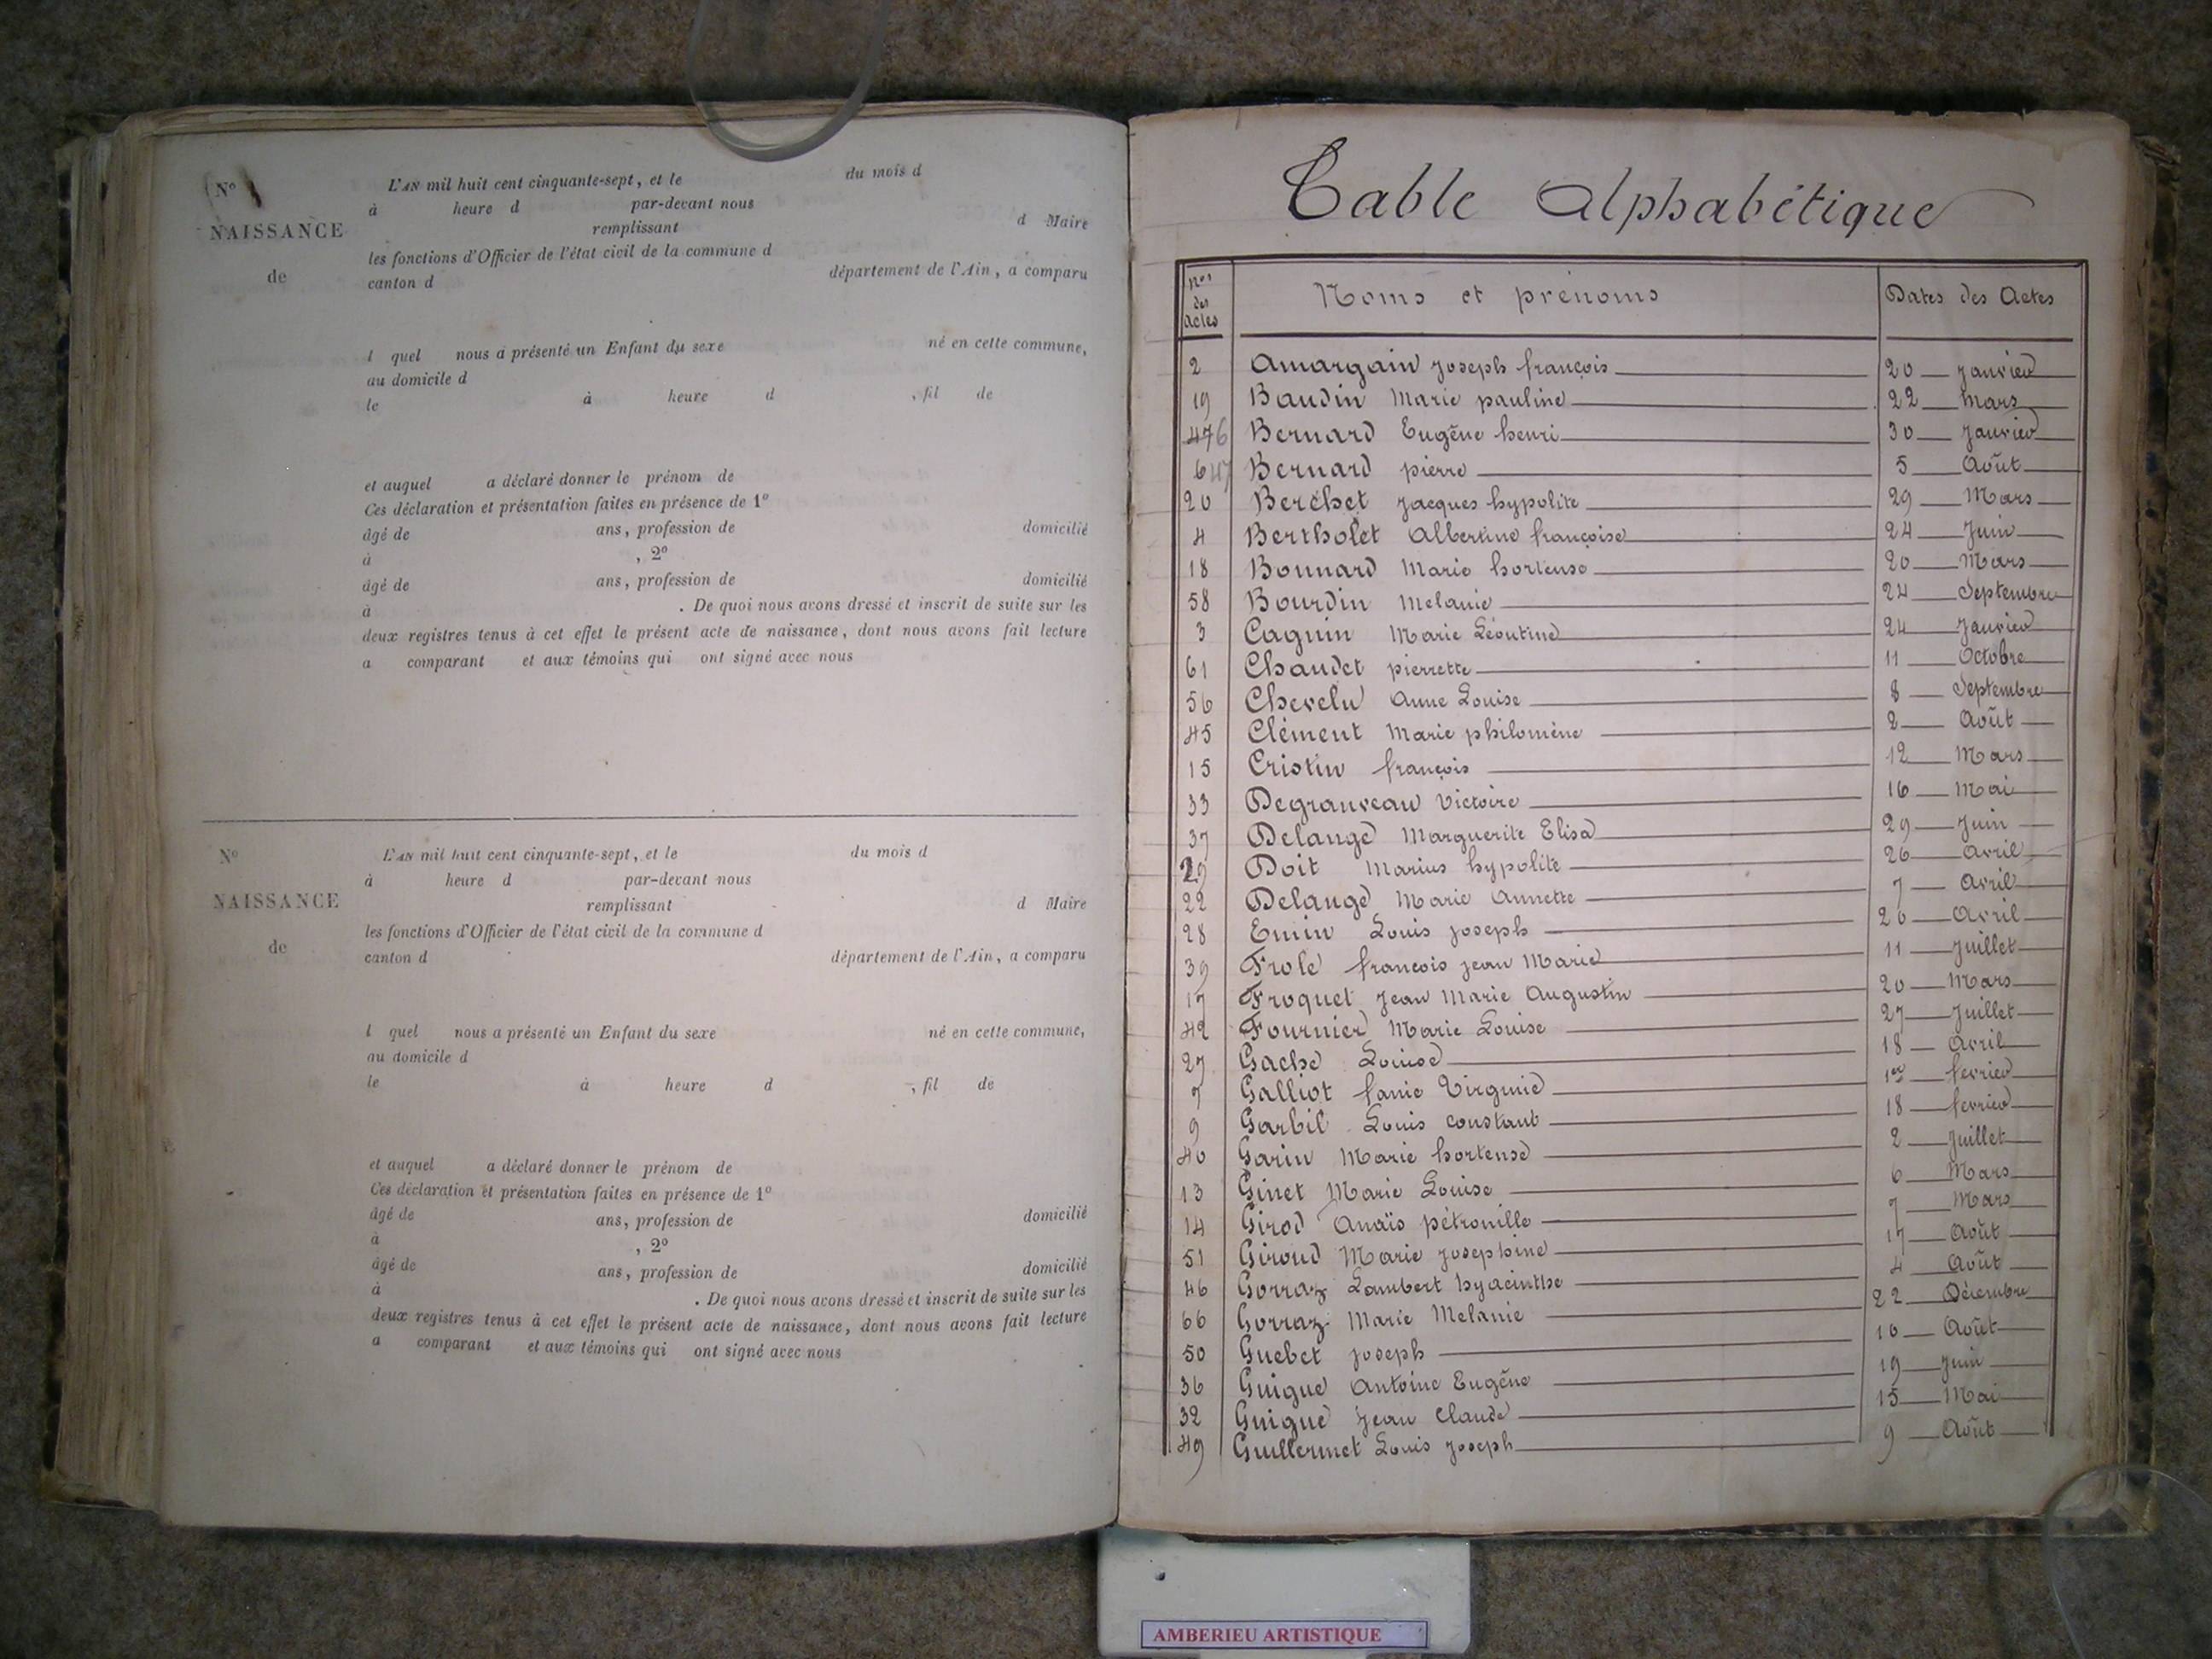 N°
L'AN mil huit cent cinquante-sept, et le du mois d
à heure d par-devant nous
NAISSANCE
remplissant d Maire
les fonctions d'Officier de l'état civil de la commune d
de
canton d département de l'Ain, a comparu
l quel nous a présenté un Enfant du sexe né en cette commune,
au domicile d
le à heure d , fil de
et auquel a déclaré donner le prénom de
Ces déclaration et présentation faites en présence de 1°
âgé de ans, profession de domicilié
à , 2°
âgé de ans, profession de domicilié
à . De quoi nous avons dressé et inscrit de suite sur les
deux registres tenus à cet effet le présent acte de naissance, dont nous avons fait lecture
a comparant et aux témoins qui ont signé avec nous
N°
L'AN mil huit cent cinquante-sept, et le du mois d
à heure d par-devant nous
NAISSANCE
remplissant d Maire
les fonctions d'Officier de l'état civil de la commune d
de
canton d département de l'Ain, a comparu
l quel nous a présenté un Enfant du sexe né en cette commune,
au domicile d
le à heure d , fil de
et auquel a déclaré donner le prénom de
Ces déclaration et présentation faites en présence de 1°
âgé de ans, profession de domicilié
à , 2°
âgé de ans, profession de domicilié
à . De quoi nous avons dressé et inscrit de suite sur les
deux registres tenus à cet effet le présent acte de naissance, dont nous avons fait lecture
a comparant et aux témoins qui ont signé avec nous
Table Alphabétique
Nos des actes Noms et prénoms Dates des Actes
2 Amargain joseph françois 20 janvier
19 Baudin Marie pauline 22 Mars
Bernard Eugène henri 30 janvier
Bernard pierre 5 Août
20 Berchet jacques hypolite 29 Mars
4 Bertholet Albertine françoise 24 Juin
18 Bonnard Marie hortense 20 Mars
58 Bourdin Melanie 24 Septembre
3 Caguin Marie Léontine 24 janvier
61 Chaudet pierrette 11 Octobre
56 Chevelu Anne Louise 8 Septembre
45 Clément Marie philomène 2 Août
15 Cristin françois 12 Mars
33 Degranveau Victoire 16 Mai
37 Delange Marguerite Elisa 29 Juin
29 Doit Marius hypolite 26 Avril
22 Delange Marie Annette 7 Avril
28 Emin Louis joseph 26 Avril
39 Frole françois jean Marie 11 Juillet
17 Froquet jean Marie Augustin 20 Mars
42 Fournier Marie Louise 27 Juillet
27 Gache Louise 18 Avril
7 Galliot fanie Virginie 1er fevrier
9 Garbil Louis constant 18 fevrier
40 Garin Marie hortense 2 Juillet
13 Ginet Marie Louise 6 Mars
14 Girod Anaïs pétronille 7 Mars
51 Giroud Marie josephine 17 Août
46 Gorraz Lambert hyacinthe 4 Août
66 Gorraz Marie Melanie 22 Décembre
50 Guebet joseph 10 Août
36 Guigue Antoine Eugène 19 Juin
32 Guigue Jean Claude 15 Mai
49 Guillermet Louis joseph 9 Août
AMBERIEU ARTISTIQUE